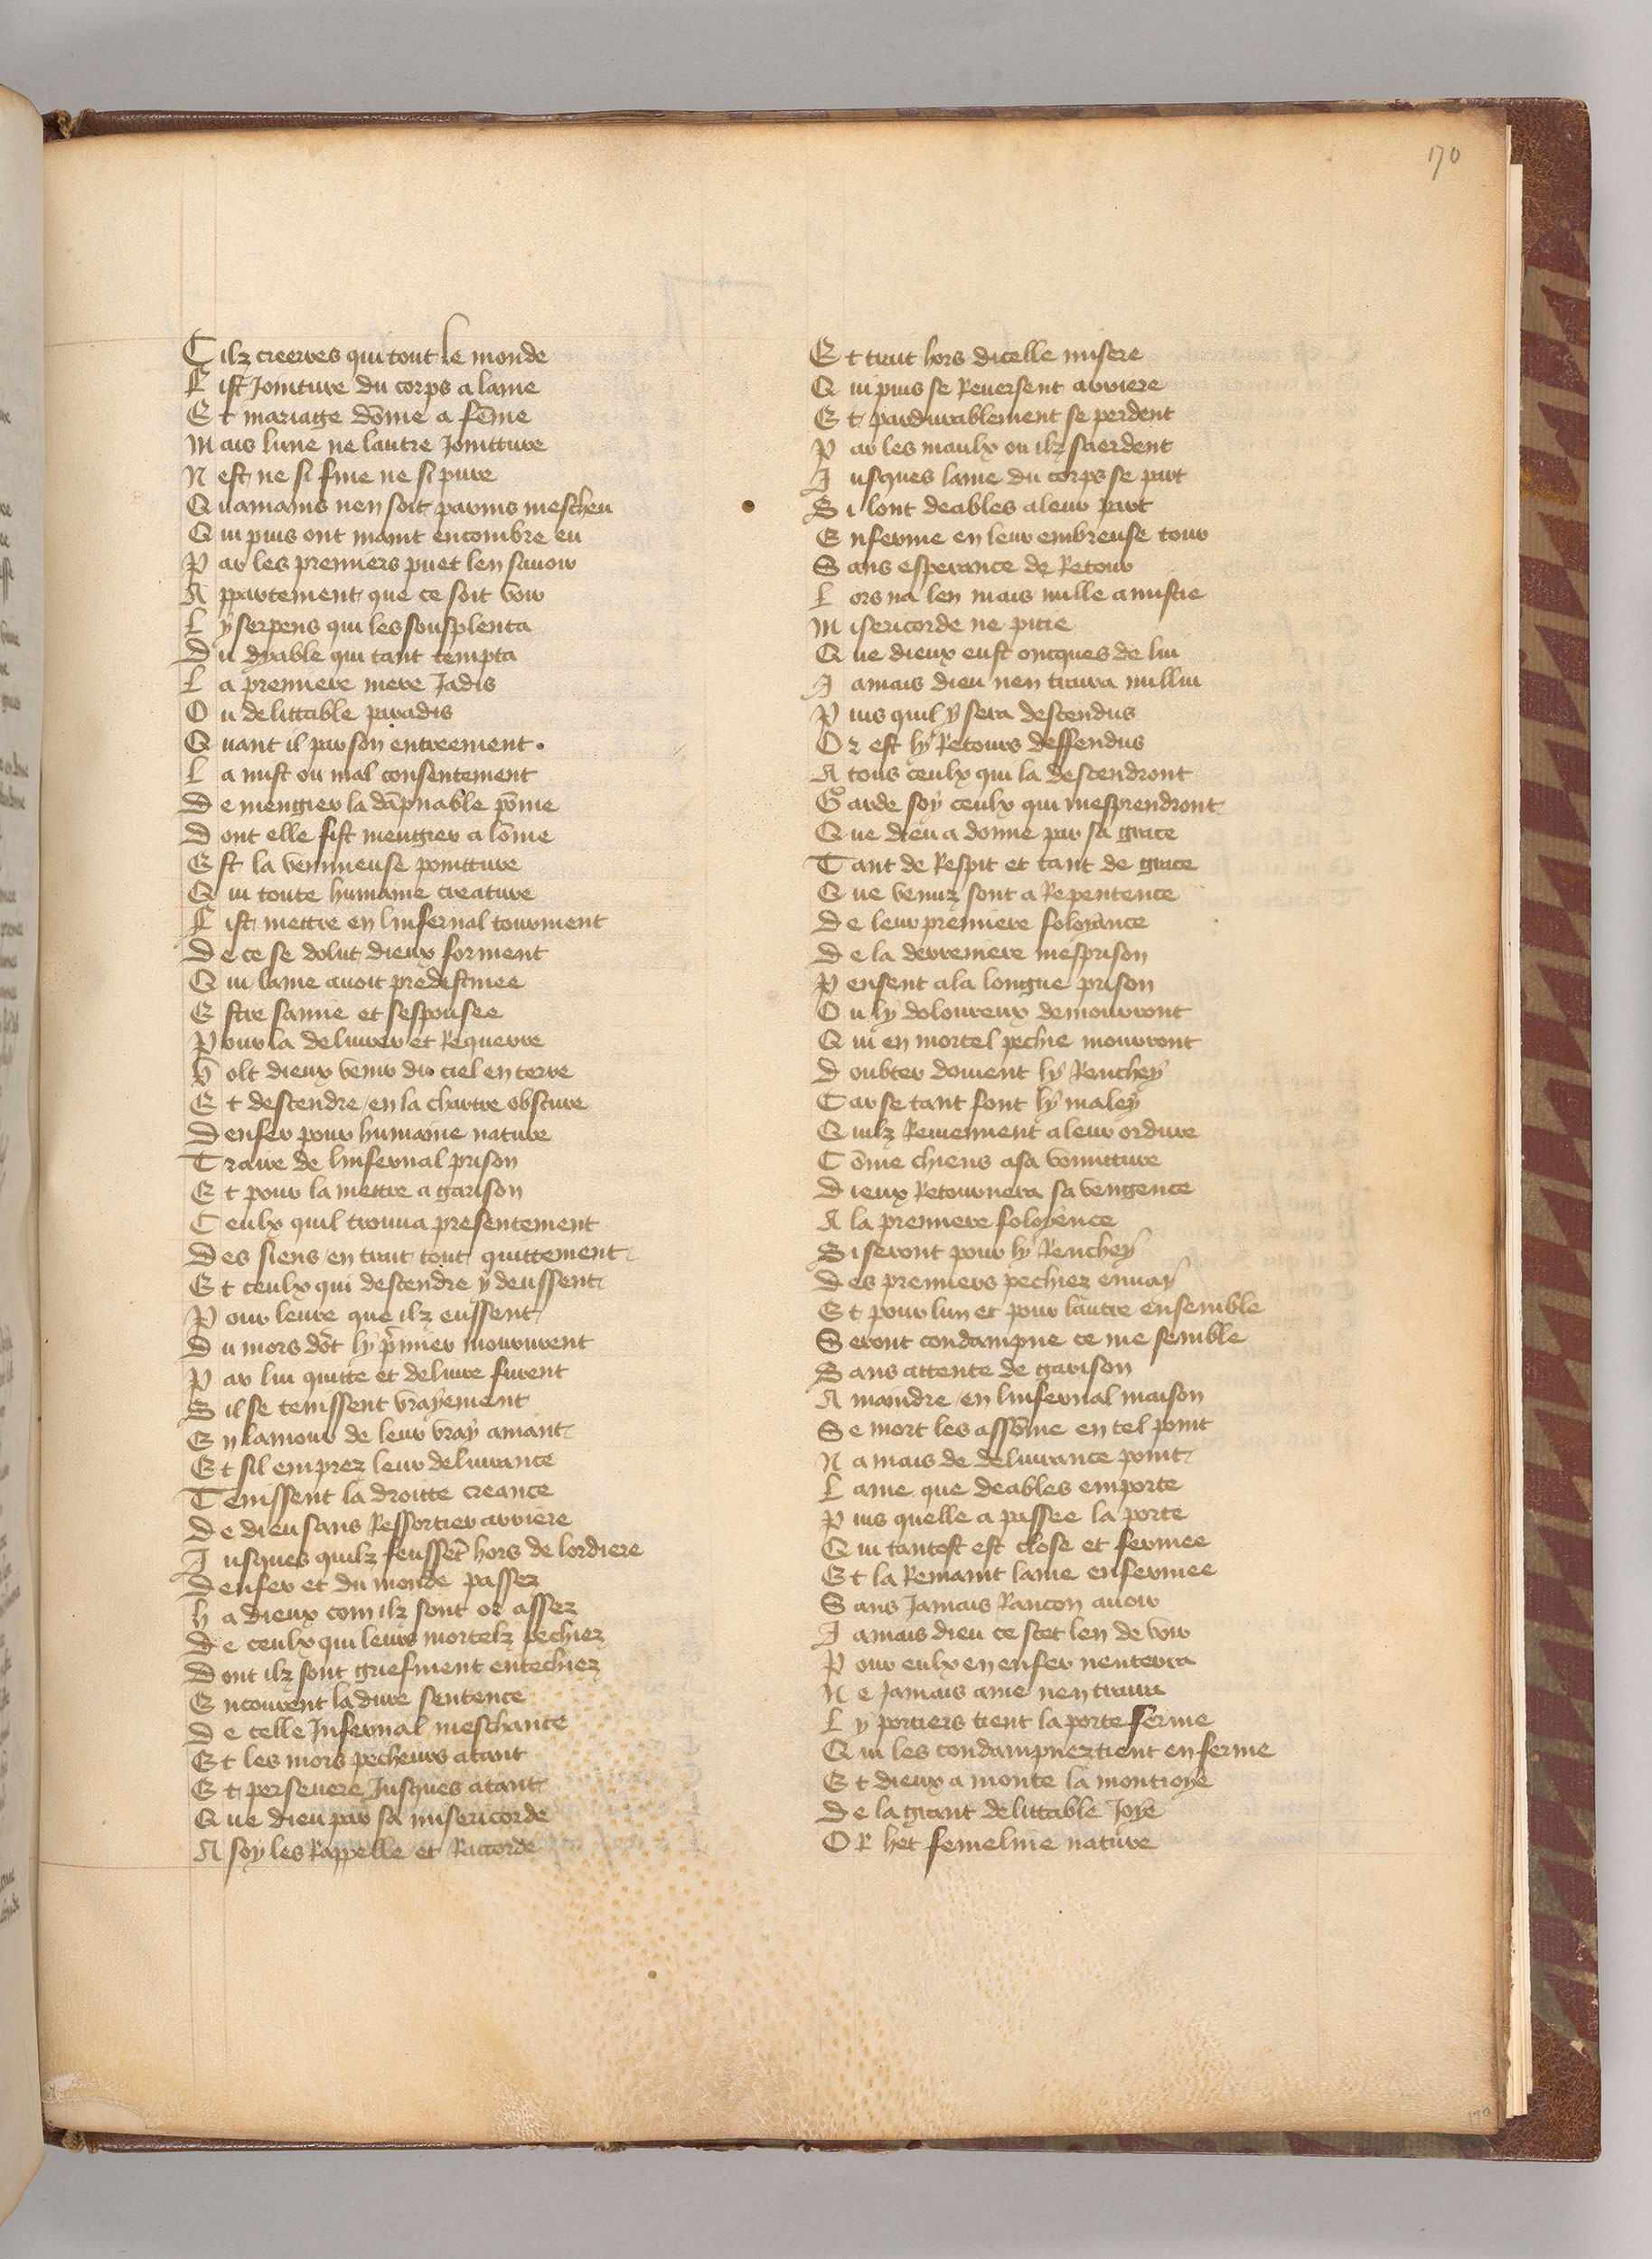 170
Cilz creerres qui tout le monde
Fist Jointure du corps a lame
Et mariage dõme a fẽme
Mais lune ne lautre Jointture
Nest ne si fine ne si pure
Quamains nen soit parnis mescheu
Qui puis ont maint encombre eu
Par les premiers puet len sauoir
Appartement que ce soit voir
Ly serpens qui les sousplenta
Du dyable qui tant tempta
La premiere mere Jadis
Ou delittable paradis
Quant il par son entreement.
La mist ou mal consentement
De mengier la dãpnable põme
Dont elle fist mengier a lõme
Est la venimeuse pointture
Qui toute humaine creature
Fist mettre en linfernal tourment
De ce se dolut dieux forment
Qui lame auoit predestinee
Estre samie et sespousee
Pour la deliurer et Requerre
Volt dieux venir du ciel en terre
Et descendre en la chartre obscure
Denfer pour humaine nature
Traire de linfernal prison
Et pour la mettre a garison
Ceulx quil trouua presentement
Des siens en trait tout quittement
Et ceulx qui descendre y deussent
Pour leure que ilz eussent
Du mors dõt ly p̃mier mourirent
Par lui quitte et deliure furent
Sil se tenissent vrayement
En lamour de leur vray amant
Et sil emprez leur deliurance
Tenissent la droitte creance
De dieu sans Ressortier arriere
Jusques quilz feussẽt hors de lordiere
Denfer et du monde passez
Ha dieux com ilz sont or assez
De ceulx qui leurs mortelz pechiez
Dont ilz sont griefment entechiez
Encourent la dure sentence
De celle Infernal meschance
Et les mors pecheurs atant
Et perseuere Jusques atant
Que dieu par sa misericorde
A soy les Rappelle et Raccorde
Et trait hors dicelle misere
Qui puis se Reuersent arriere
Et pardurablement se perdent
Par les maulx ou ilz saerdent
Jusques lame du corps se part
Si lont deables a leur part
Enferme en leur embreuse tour
Sans esperance de Retour
Lors na len mais nulle amistie
Misericorde ne pitie
Que dieux eust oncques de lui
Jamais dieu nen tirara nullui
Puis quil y sera descendus
Or est ly Retours deffendus
A tous ceulx qui la descendront
Garde soy ceulx qui mesprendront
Que dieu a donne par sa grace
Tant de Respit et tant de grace
Que venuz sont a Repentence
De leur premiere foloyance
De la derreniere mesprison
Pensent a la longue prison
Ou ly doloureux demourront
Qui en mortel pechie mourront
Doubter doiuent ly Renchey
Car se tant font ly maley
Quilz Reuiennent a leur ordure
Cõme chiens a sa vomitture
Dieux Retournera sa vengence
A la premiere foloyence
Si seront pour ly Renchey
Des premiers pechiez enuay
Et pour lun et pour lautre ensemble
Seront condampne ce me semble
Sans attente de garison
A maindre en linfernal maison
Se mort les assõme en tel point
Na mais de deliurance point
Lame que deables emporte
Puis quelle a passee la porte
Qui tantost est close et fermee
Et la Remaint lame enfermee
Sans Jamais Rancon auoir
Jamais dieu ce scet len de voir
Pour eulx en enfer nenterra
Ne Jamais ame nen traira
Ly portiers tient la porte ferme
Qui les condampnez tient en ferme
Et dieux a monte la montioye
De la grant delittable Joye
OR het femeline nature
170